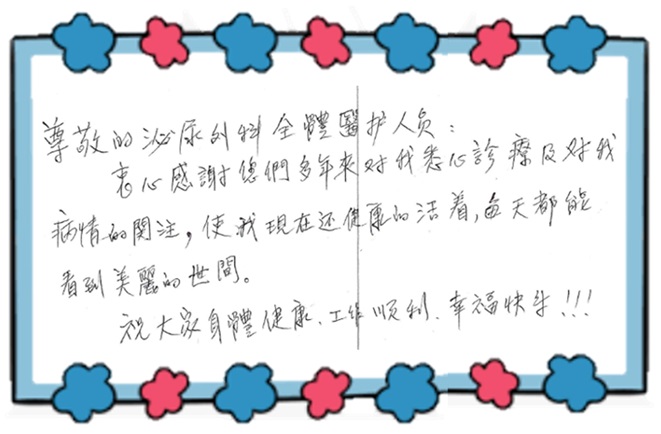 尊敬的泌尿外科全體醫护人员：
衷心感謝您們多年來对我悉心診療及对我
病情的関注，使我現在还健康的活着，每天都能
看到美麗的世間。
祝大家身體健康、工作順利、幸福快乐!!!